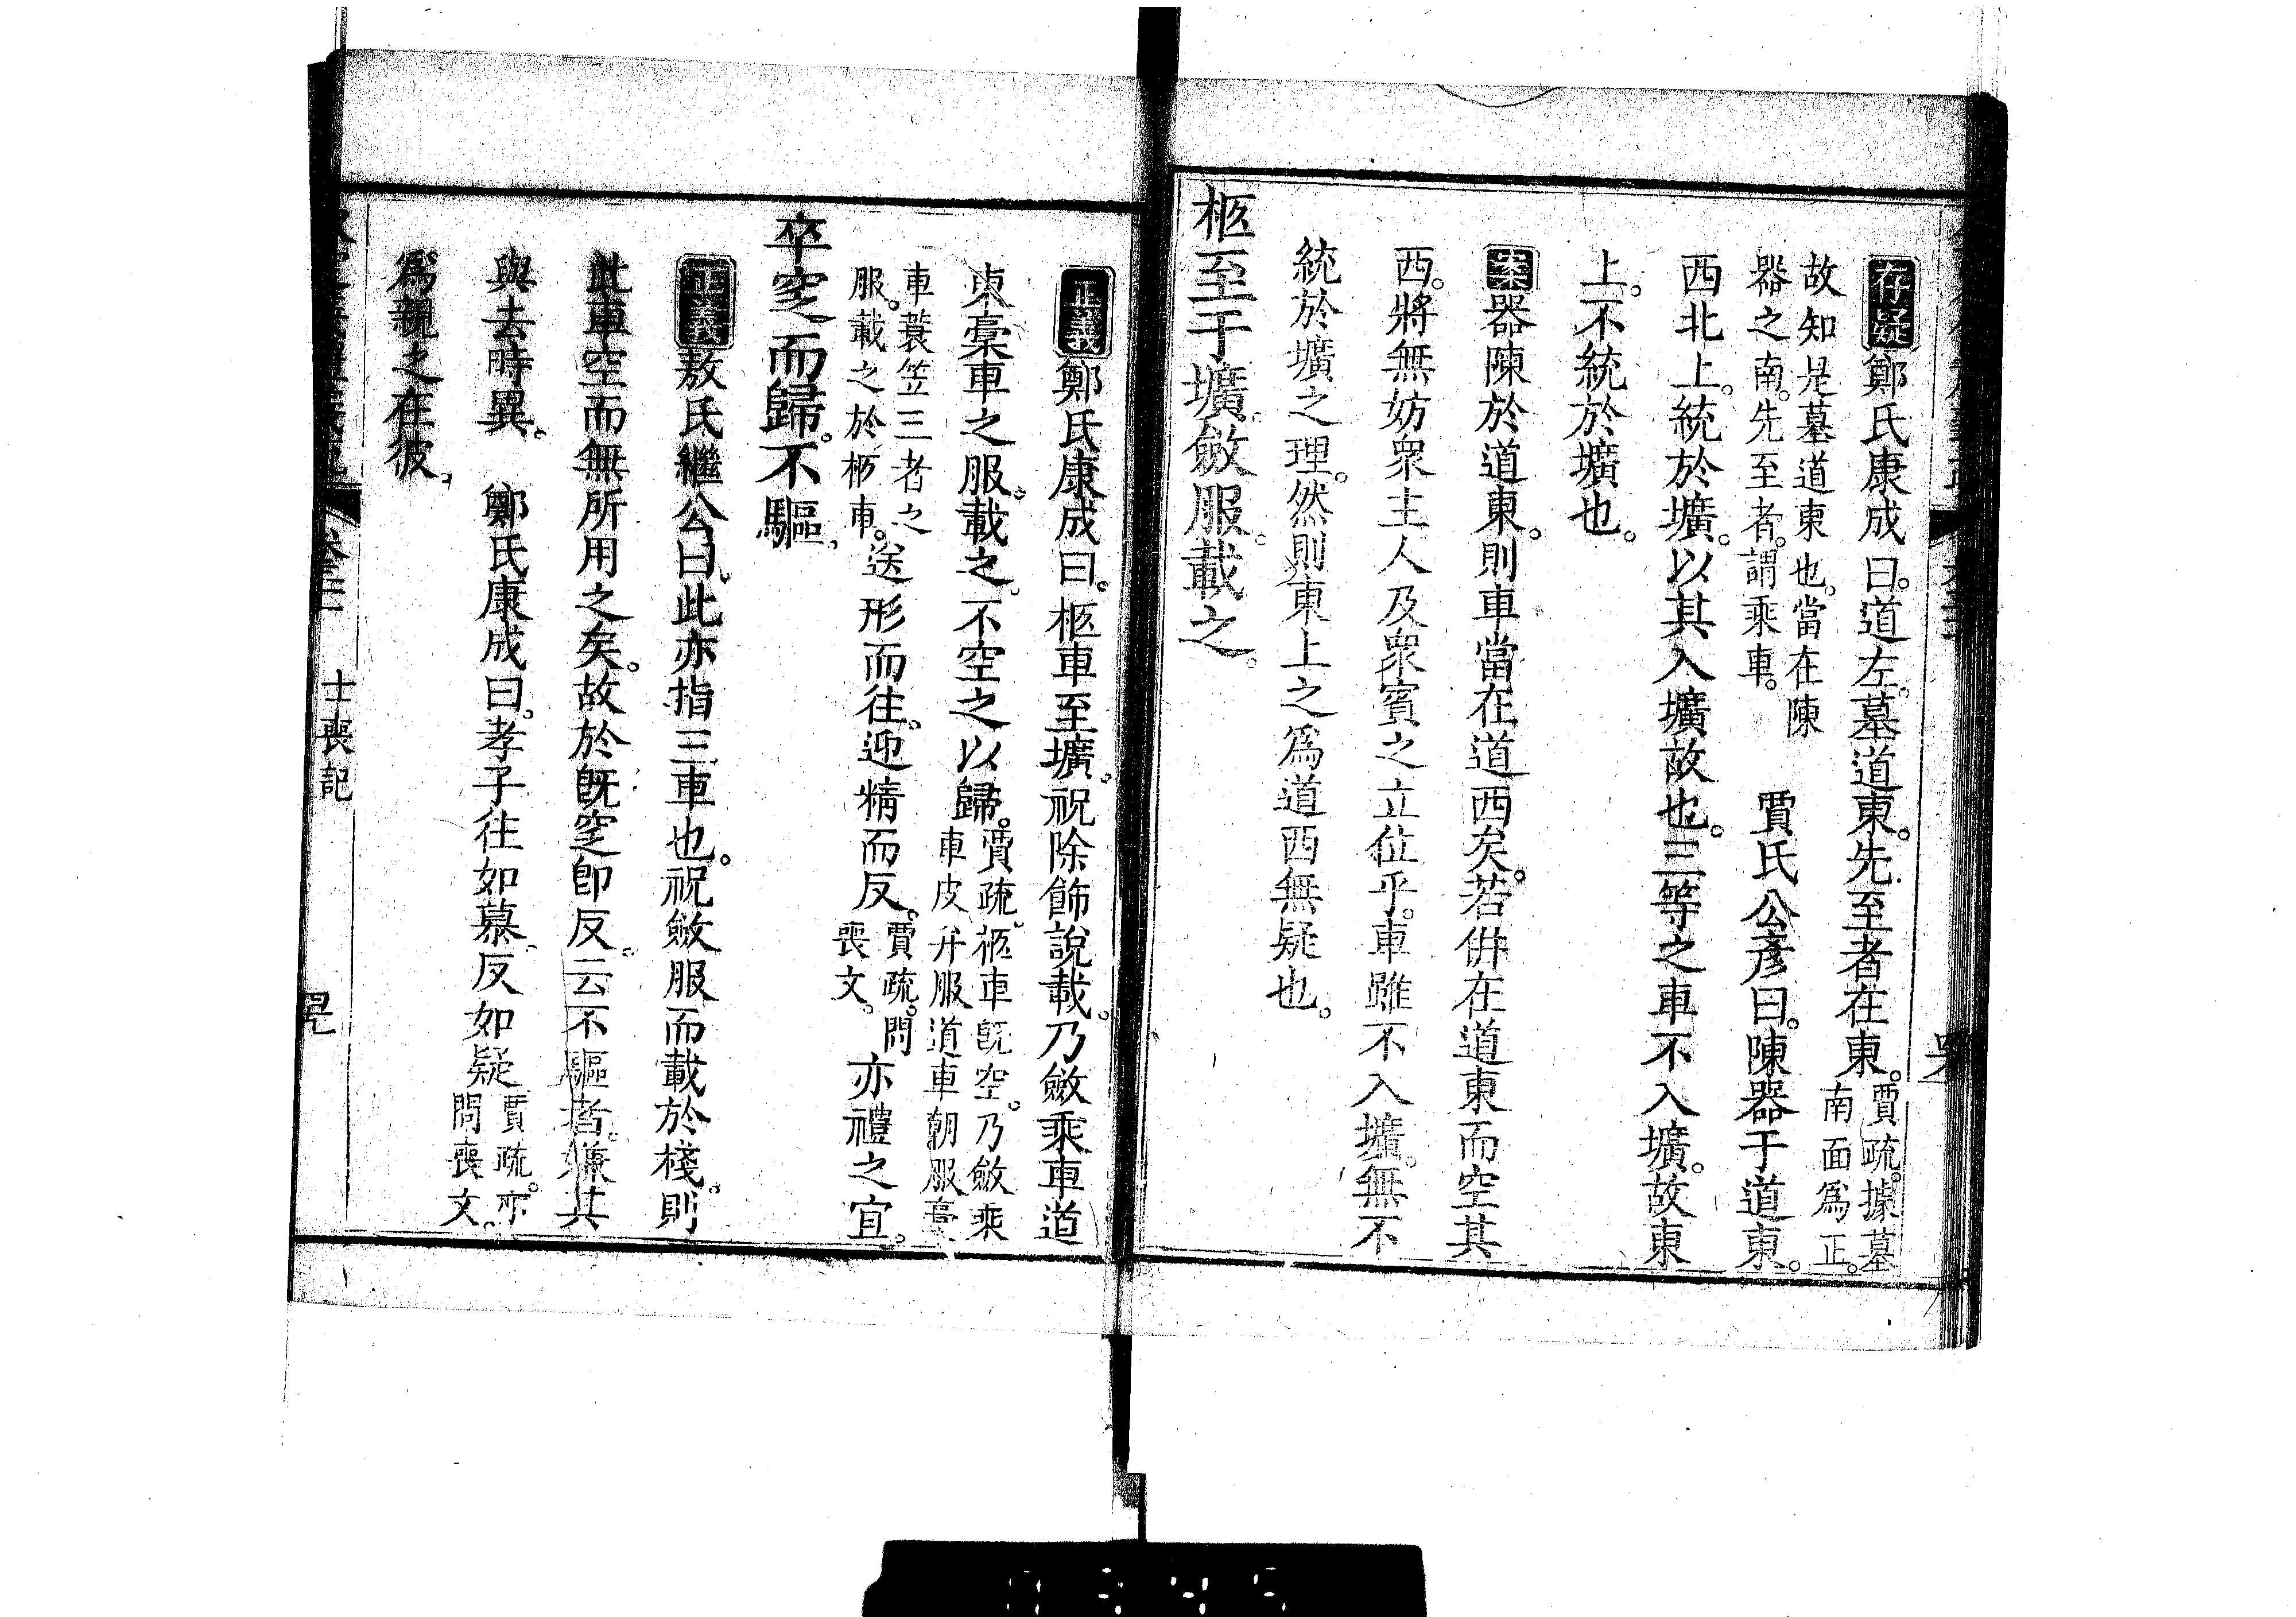 存疑鄭氏康成曰。道左。墓道東。先至者在東。賈疏。據墓
南面爲正。
故知是墓道東也。當在陳
器之南。先至者。謂乘車。
賈氏公彥曰。陳器于道東。
西北上。統於壙。以其入壙故也。三等之車不入壙。故東
上。不統於壙也。
案器陳於道東。則車當在道西矣。若併在道東而空其
西。將無妨衆主人及衆賓之立位乎。車雖不入壙。無不
統於壙之理。然則東上之爲道西無疑也。
柩至于壙。斂服。載之。
正義鄭氏康成曰。柩車至壙。祝除飾說載。乃斂乘車道
車槀車之服。載之。不空之以歸。賈疏。柩車旣空。乃斂乘
車皮弁服道車朝服槀
車蓑笠三者之
服。載之於柩車。
送形而往。迎精而反。賈疏。問
喪文。
亦禮之宜。
卒窆而歸。不驅。
正義敖氏繼公曰。此亦指三車也。祝斂服而載於棧。則
此車空而無所用之矣。故於旣窆卽反。云不驅者。嫌其
與去時異。　鄭氏康成曰。孝子往如慕。反如疑賈疏。亦
問喪文。
爲親之在彼。
士喪記